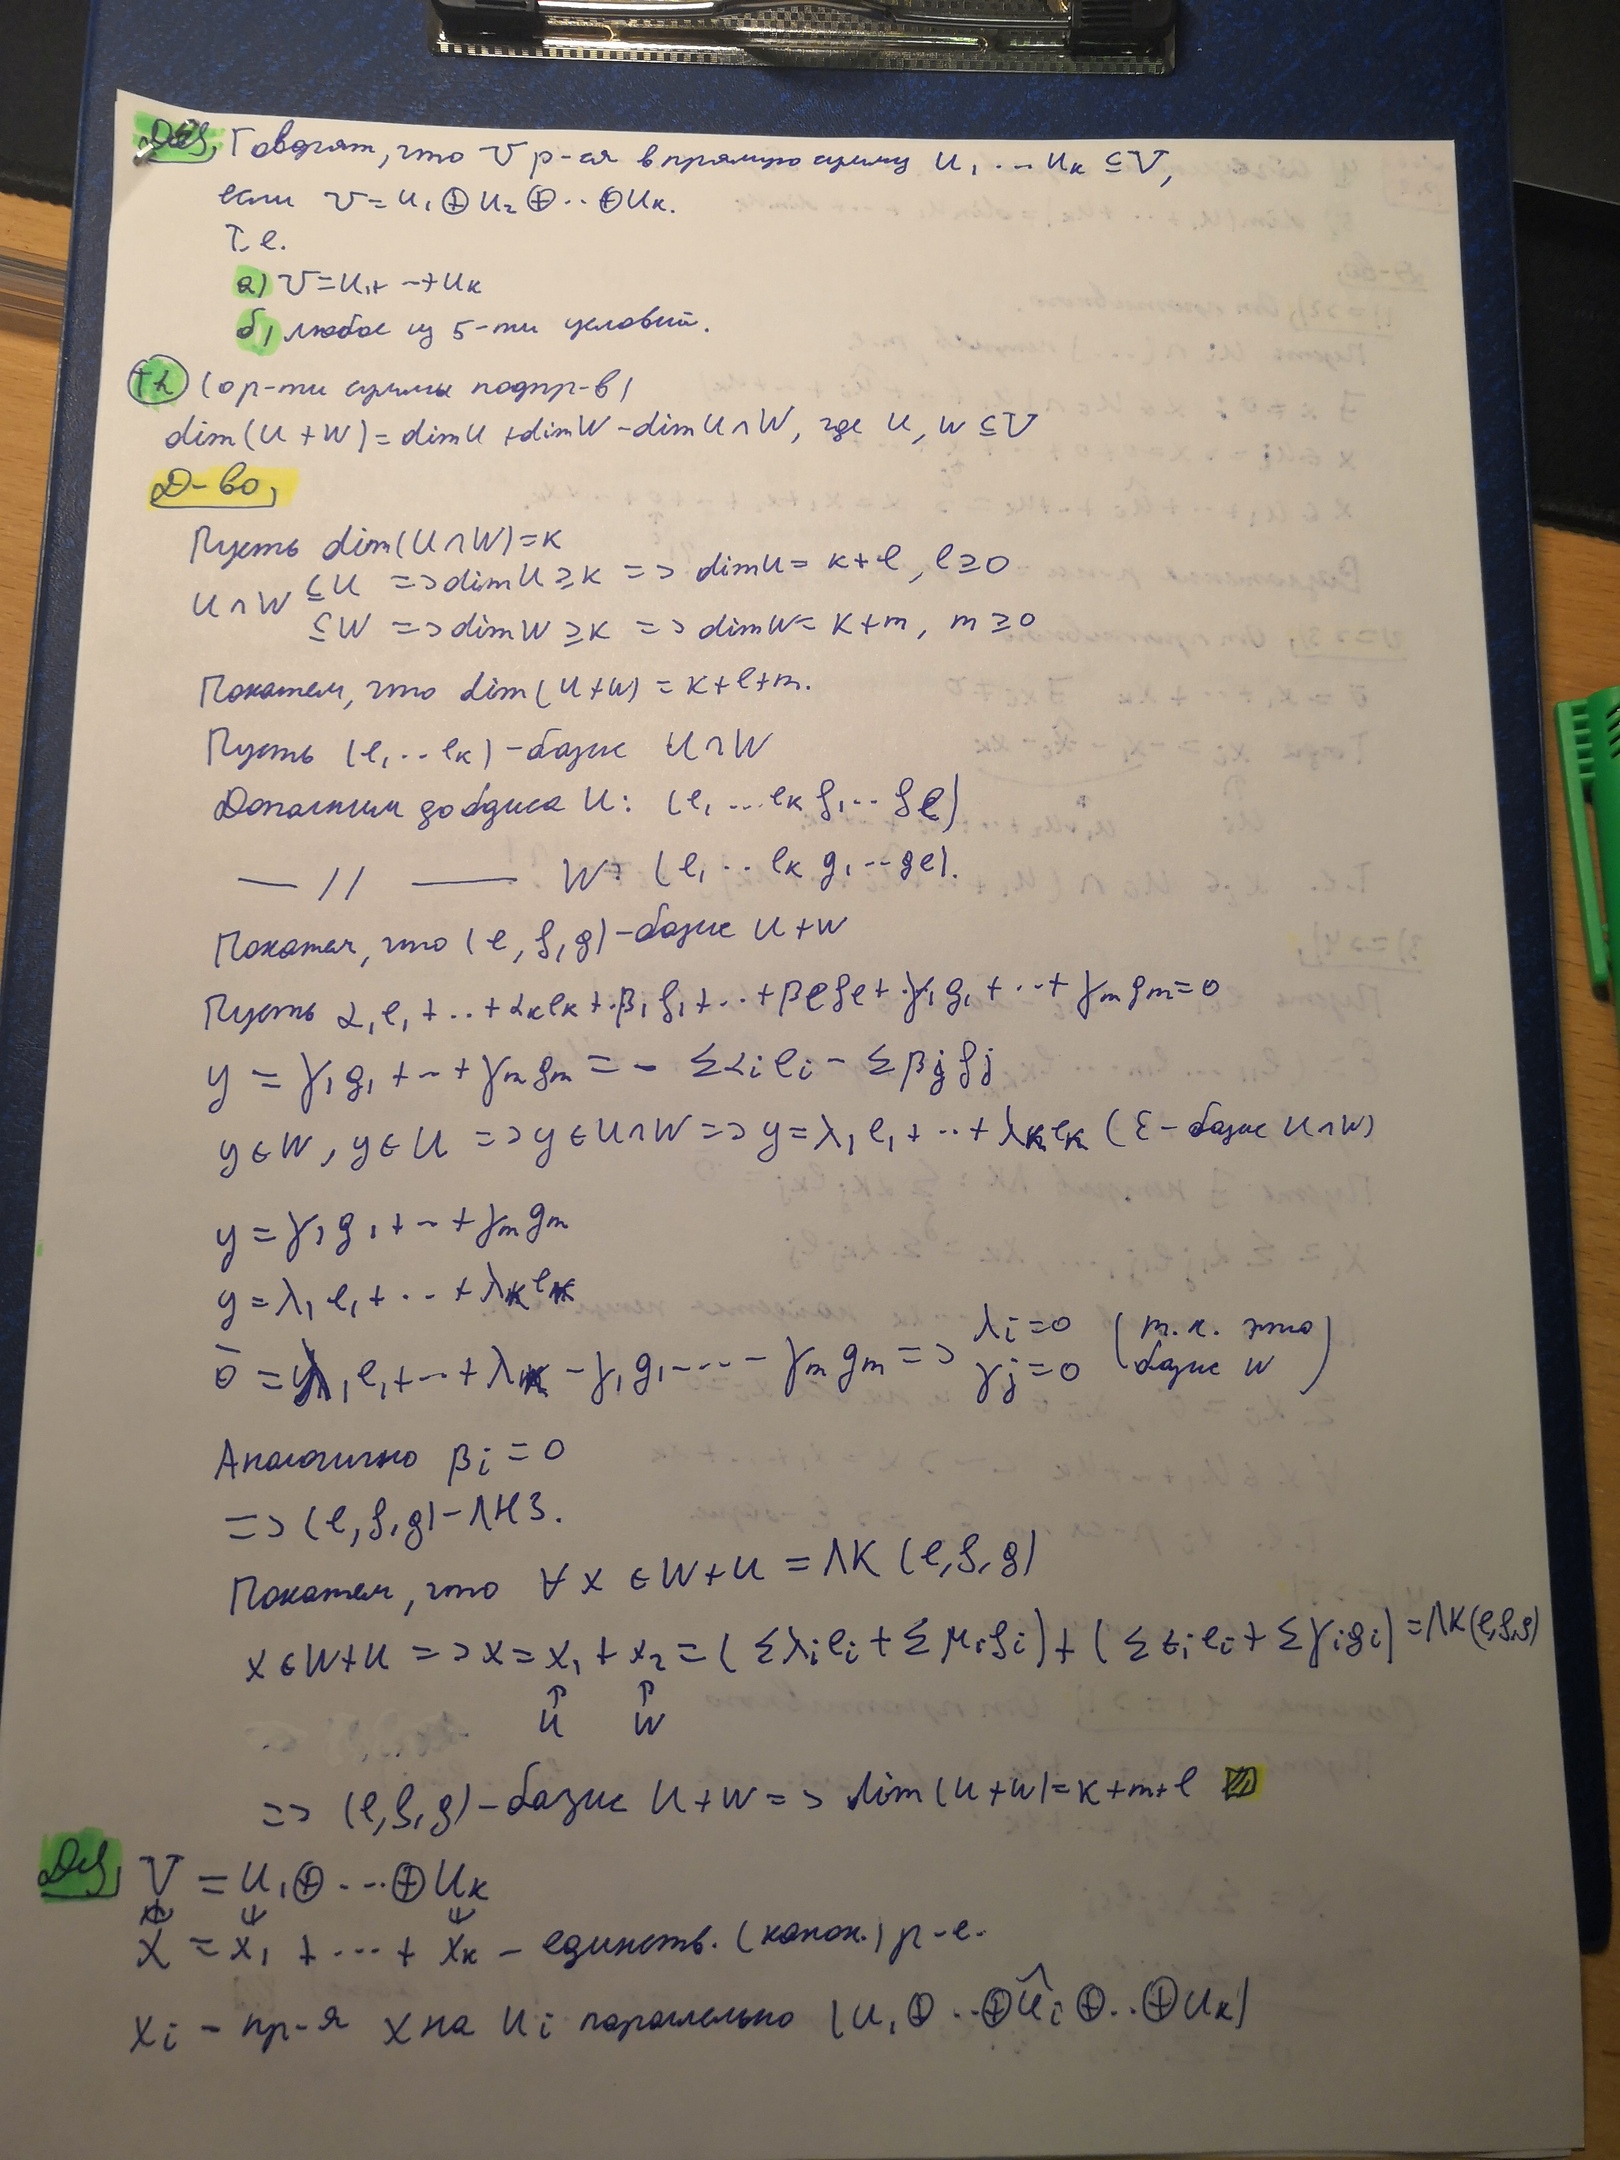 Def, Говорят, что V р-ся в прямую сумму U₁ ... Uₖ ⊆ V,
если V = U₁ ⊕ U₂ ⊕ ... ⊕ Uₖ.
Т.е.
а) V = U₁ + ... + Uₖ
б) любое из 5-ти условий.
Th (о р-ти суммы подпр-в)
dim(U+W) = dimU + dimW - dimU∩W, где U, W ⊆ V
Д-во,
Пусть dim(U∩W) = k
U∩W ⊆U => dimU ≥ k => dimU = k+l, l ≥ 0
⊆W => dimW ≥ k => dimW = k+m, m ≥ 0
Покажем, что dim(U+W) = k+l+m.
Пусть (e₁ ... eₖ) - базис U∩W
Дополним до базиса U: (e₁ ... eₖ f₁ ... fₗ)
— // — W: (e₁ ... eₖ g₁ ... gₗ).
Покажем, что (e, f, g) - базис U+W
Пусть α₁e₁ + ... + αₖeₖ + β₁f₁ + ... + βₗfₗ + γ₁g₁ + ... + γₘgₘ = 0
y = γ₁g₁ + ... + γₘgₘ = - Σαᵢeᵢ - Σβⱼfⱼ
y ∈ W, y ∈ U => y ∈ U∩W => y = λ₁e₁ + ... + λₖeₖ (ℰ - базис U∩W)
y = γ₁g₁ + ... + γₘgₘ
y = λ₁e₁ + ... + λₖeₖ
0̄ = λ₁e₁ + ... + λₖ - γ₁g₁ - ... - γₘgₘ => λᵢ = 0 γⱼ = 0 (т.к. это базис W)
Аналогично βᵢ = 0
=> (e, f, g) - ЛНЗ.
Покажем, что ∀x ∈ W+U = ЛК (e, f, g)
x ∈ W+U => x = x₁ + x₂ = (Σλᵢeᵢ + Σμᵢfᵢ) + (Σtᵢeᵢ + Σγᵢgᵢ) = ЛК(e,f,g)
U W
=> (e, f, g) - базис U+W => dim(U+W) = k+m+l
Def, V = U₁ ⊕ ... ⊕ Uₖ
x = x₁ + ... + xₖ - единств. (канон.) р-е.
xᵢ - пр-я x на Uᵢ параллельно (U₁ ⊕ ... ⊕ Ûᵢ ⊕ ... ⊕ Uₖ)